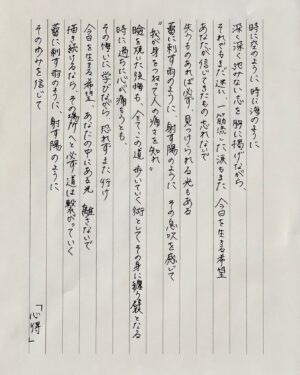 時に空のように、時に海のように
深く深く絶みない心を胸に掲げながら、
それでもまた迷い、一筋流した涙もまた 今日を生きる希望
あなたが信じてきたもの忘れないで
失うものあれば必ず、見つけられる光もある
蕾に刺す雨のように、射す陽のように その息吹を感じて
"我が身をつねって人の痛さを知れ"
瞼を焼いた後悔も、全てこの道歩いていく術としてその身に纏う鎧となる
時に過ちに心が痛もうとも
その悔いに学びながら 恐れずまた行け
今日を生きる希望、あなたの中にある光 離さないで
描き続けるなら、その場所へと必ず道は繋がっていく
蕾に刺す雨のように、射す陽のように
その歩みを信じて
「心得」